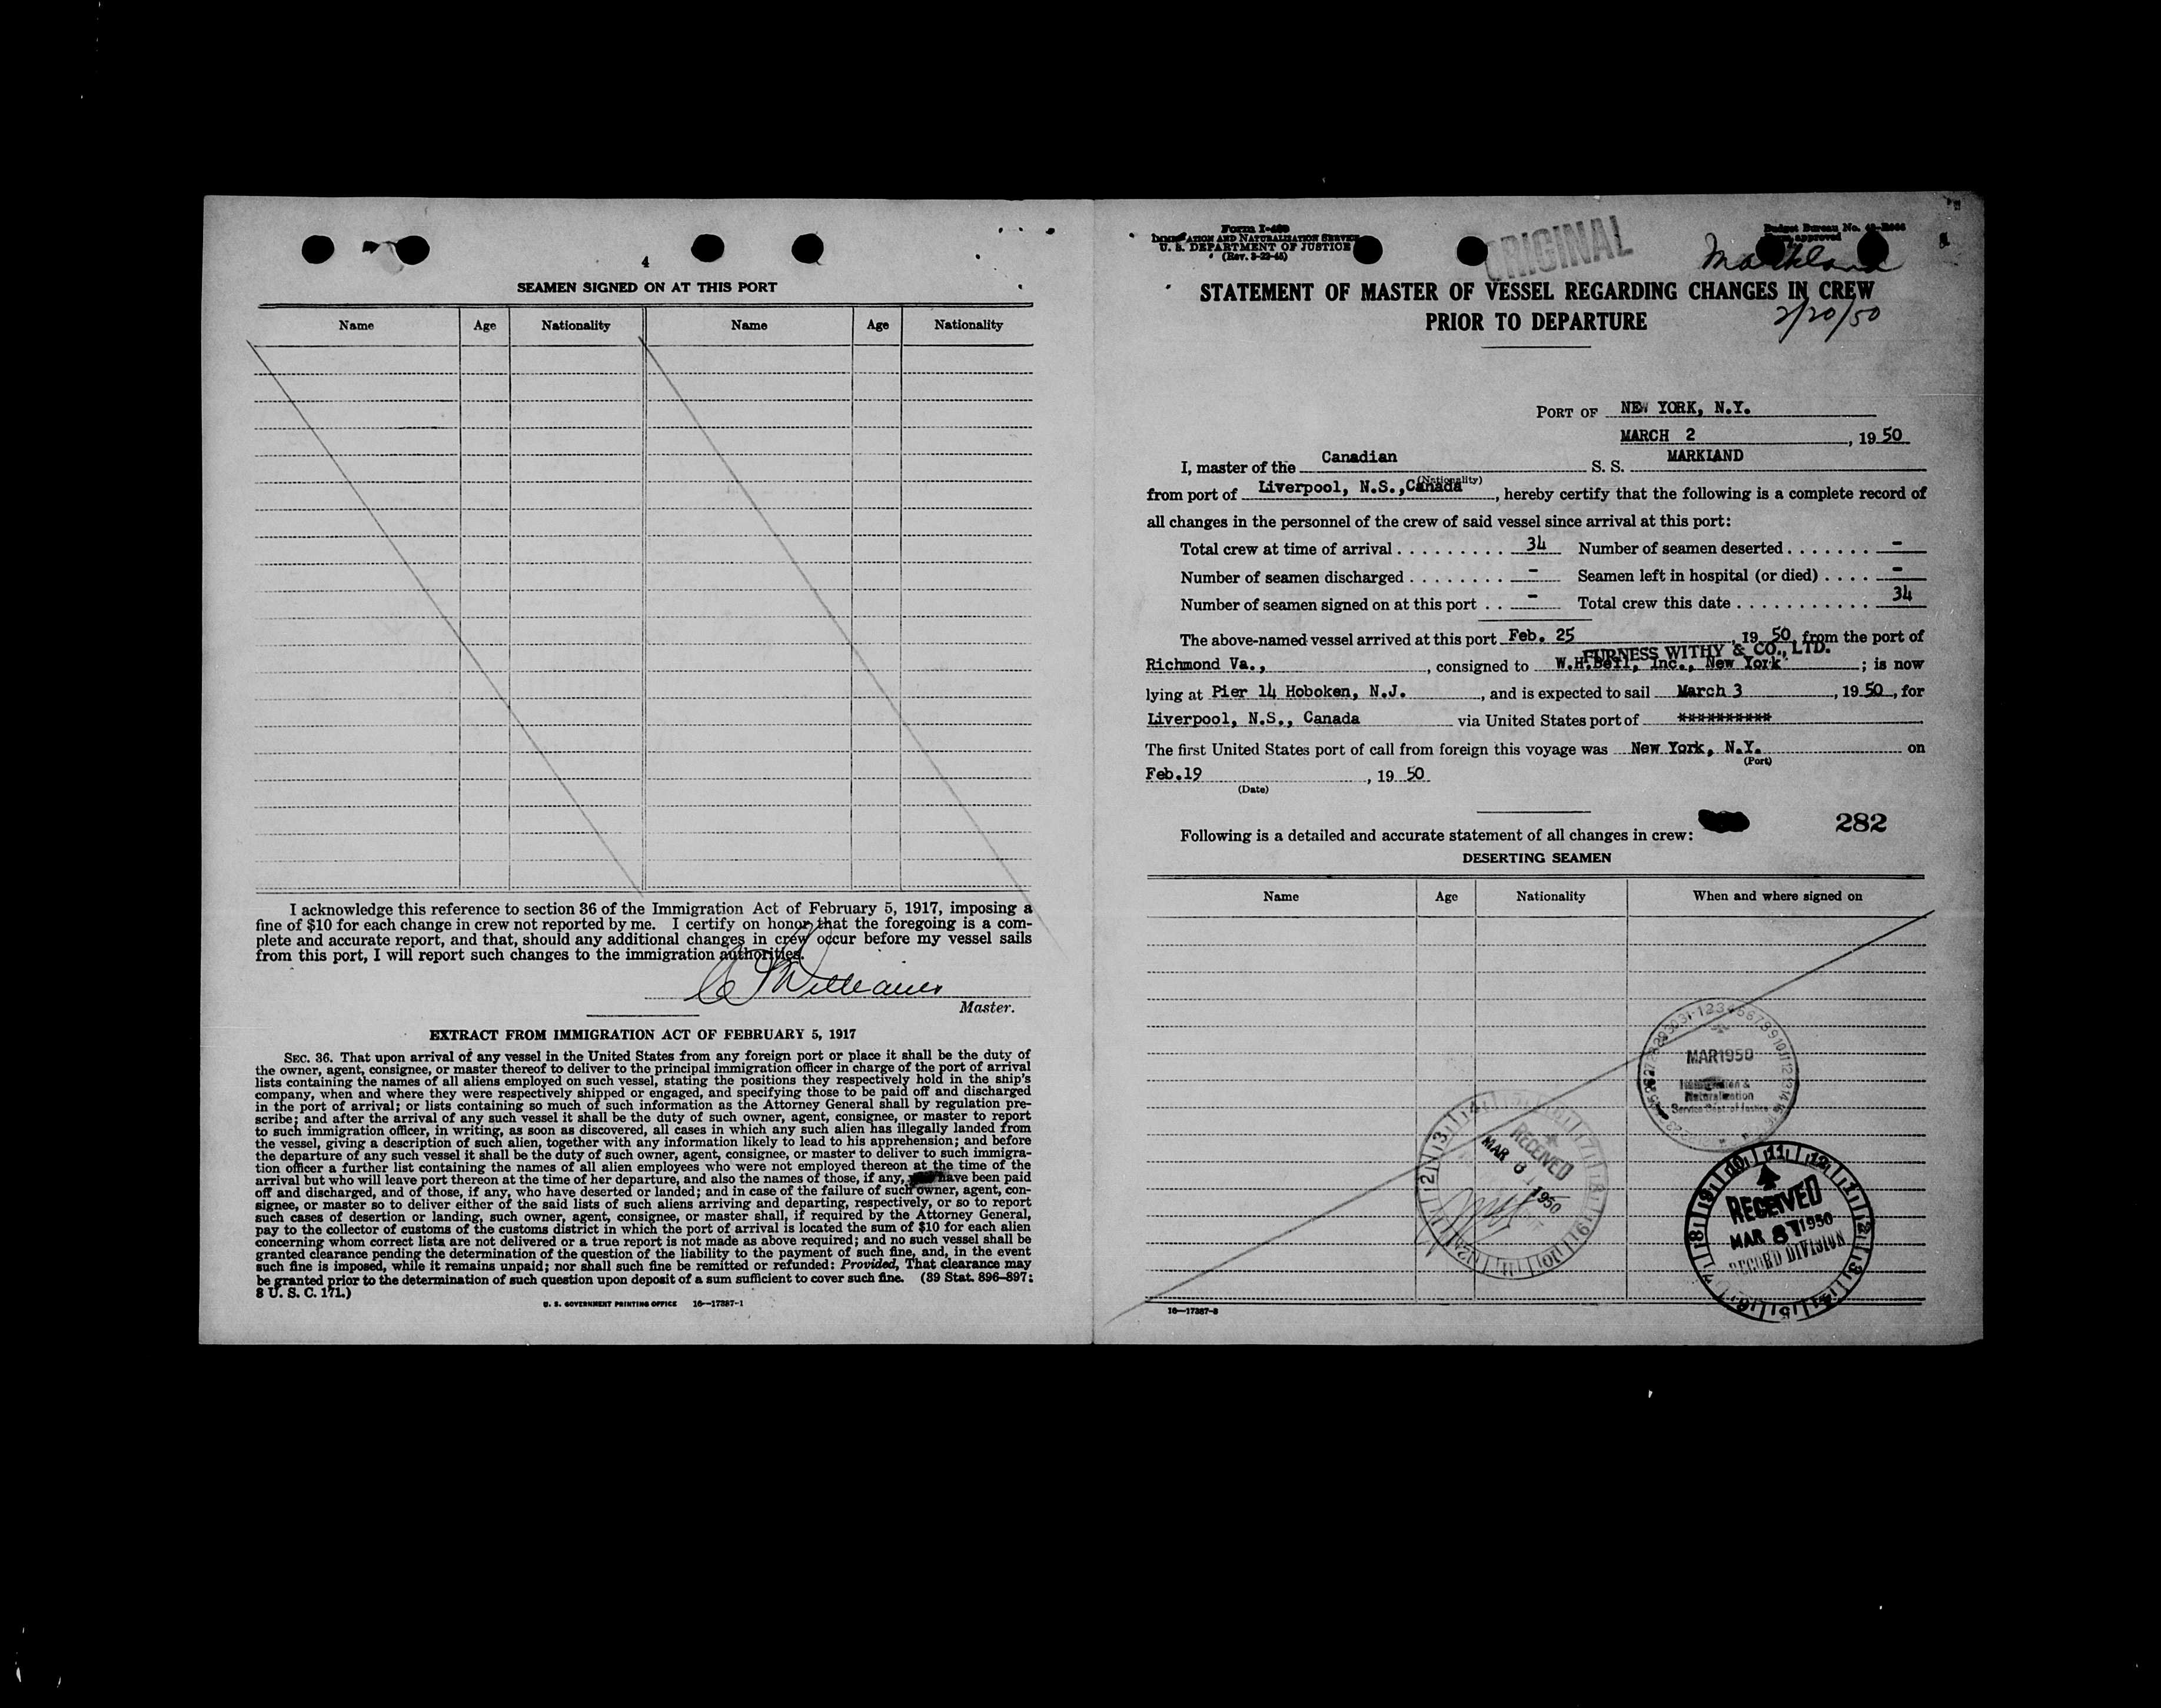 4
SEAMEN SIGNED ON AT THIS PORT
Name Age Nationality Name Age Nationality
I acknowledge this reference to section 36 of the Immigration Act of February 5, 1917, imposing a
fine of $10 for each change in crew not reported by me. I certify on honor that the foregoing is a com-
plete and accurate report, and that, should any additional changes in crew occur before my vessel sails
from this port, I will report such changes to the immigration authorities.
Williams
Master.
EXTRACT FROM IMMIGRATION ACT OF FEBRUARY 5, 1917
SEC. 36. That upon arrival of any vessel in the United States from any foreign port or place it shall be the duty of
the owner, agent, consignee, or master thereof to deliver to the principal immigration officer in charge of the port of arrival
lists containing the names of all aliens employed on such vessel, stating the positions they respectively hold in the ship's
company, when and where they were respectively shipped or engaged, and specifying those to be paid off and discharged
in the port of arrival; or lists containing so much of such information as the Attorney General shall by regulation pre-
scribe; and after the arrival of any such vessel it shall be the duty of such owner, agent, consignee, or master to report
to such immigration officer, in writing, as soon as discovered, all cases in which any such alien has illegally landed from
the vessel, giving a description of such alien, together with any information likely to lead to his apprehension; and before
the departure of any such vessel it shall be the duty of such owner, agent, consignee, or master to deliver to such immigra-
tion officer a further list containing the names of all alien employees who were not employed thereon at the time of the
arrival but who will leave port thereon at the time of her departure, and also the names of those, if any, have been paid
off and discharged, and of those, if any, who have deserted or landed; and in case of the failure of such owner, agent, con-
signee, or master so to deliver either of the said lists of such aliens arriving and departing, respectively, or so to report
such cases of desertion or landing, such owner, agent, consignee, or master shall, if required by the Attorney General,
pay to the collector of customs of the customs district in which the port of arrival is located the sum of $10 for each alien
concerning whom correct lists are not delivered or a true report is not made as above required; and no such vessel shall be
granted clearance pending the determination of the question of the liability to the payment of such fine, and, in the event
such fine is imposed, while it remains unpaid; nor shall such fine be remitted or refunded: Provided, That clearance may
be granted prior to the determination of such question upon deposit of a sum sufficient to cover such fine. (39 Stat. 896-897;
8 U. S. C. 171.)
U. S. GOVERNMENT PRINTING OFFICE 16—17387-1
IMMIGRATION AND NATURALIZATION SERVICE
U. S. DEPARTMENT OF JUSTICE
(Rev. 3-22-45)
ORIGINAL
Budget Bureau No.
approved
Markland
STATEMENT OF MASTER OF VESSEL REGARDING CHANGES IN CREW
PRIOR TO DEPARTURE
2/20/50
PORT OF NEW YORK, N.Y.
MARCH 2, 19 50
I, master of the Canadian S. S. MARKLAND
(Nationality)
from port of Liverpool, N.S., Canada, hereby certify that the following is a complete record of
all changes in the personnel of the crew of said vessel since arrival at this port:
Total crew at time of arrival . . . . . . . . . 34 Number of seamen deserted . . . . . . . -
Number of seamen discharged . . . . . . . . - Seamen left in hospital (or died) . . . . -
Number of seamen signed on at this port . . - Total crew this date . . . . . . . . . . . 34
The above-named vessel arrived at this port Feb. 25, 19 50, from the port of
FURNESS WITHY & CO., LTD.
Richmond Va., , consigned to W.H.Bell, Inc., New York ; is now
lying at Pier 14 Hoboken, N.J. , and is expected to sail March 3, 19 50, for
Liverpool, N.S., Canada via United States port of **********
The first United States port of call from foreign this voyage was New York, N.Y. on
(Port)
Feb.19, 19 50
(Date)
282
Following is a detailed and accurate statement of all changes in crew:
DESERTING SEAMEN
Name Age Nationality When and where signed on
MAR 1950
Immigration &
Naturalization
Service Dept. of Justice
RECEIVED
MAR 1950
RECEIVED
MAR 8 1950
RECORD DIVISION
16—17387-3